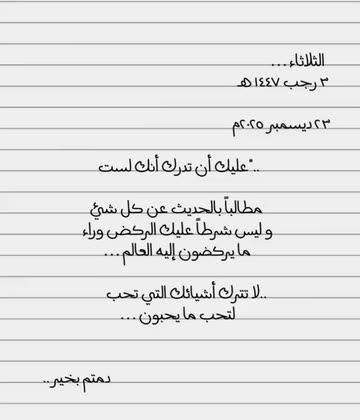 الثلاثاء...
٣ رجب ١٤٤٧ هـ
٢٣ ديسمبر ٢٠٢٥م
.."عليك أن تدرك أنك لست
مطالباً بالحديث عن كل شئ
و ليس شرطاً عليك الركض وراء
ما يركضون إليه العالم...
..لا تترك أشيائك التي تحب
لتحب ما يحبون...
دمتم بخير..